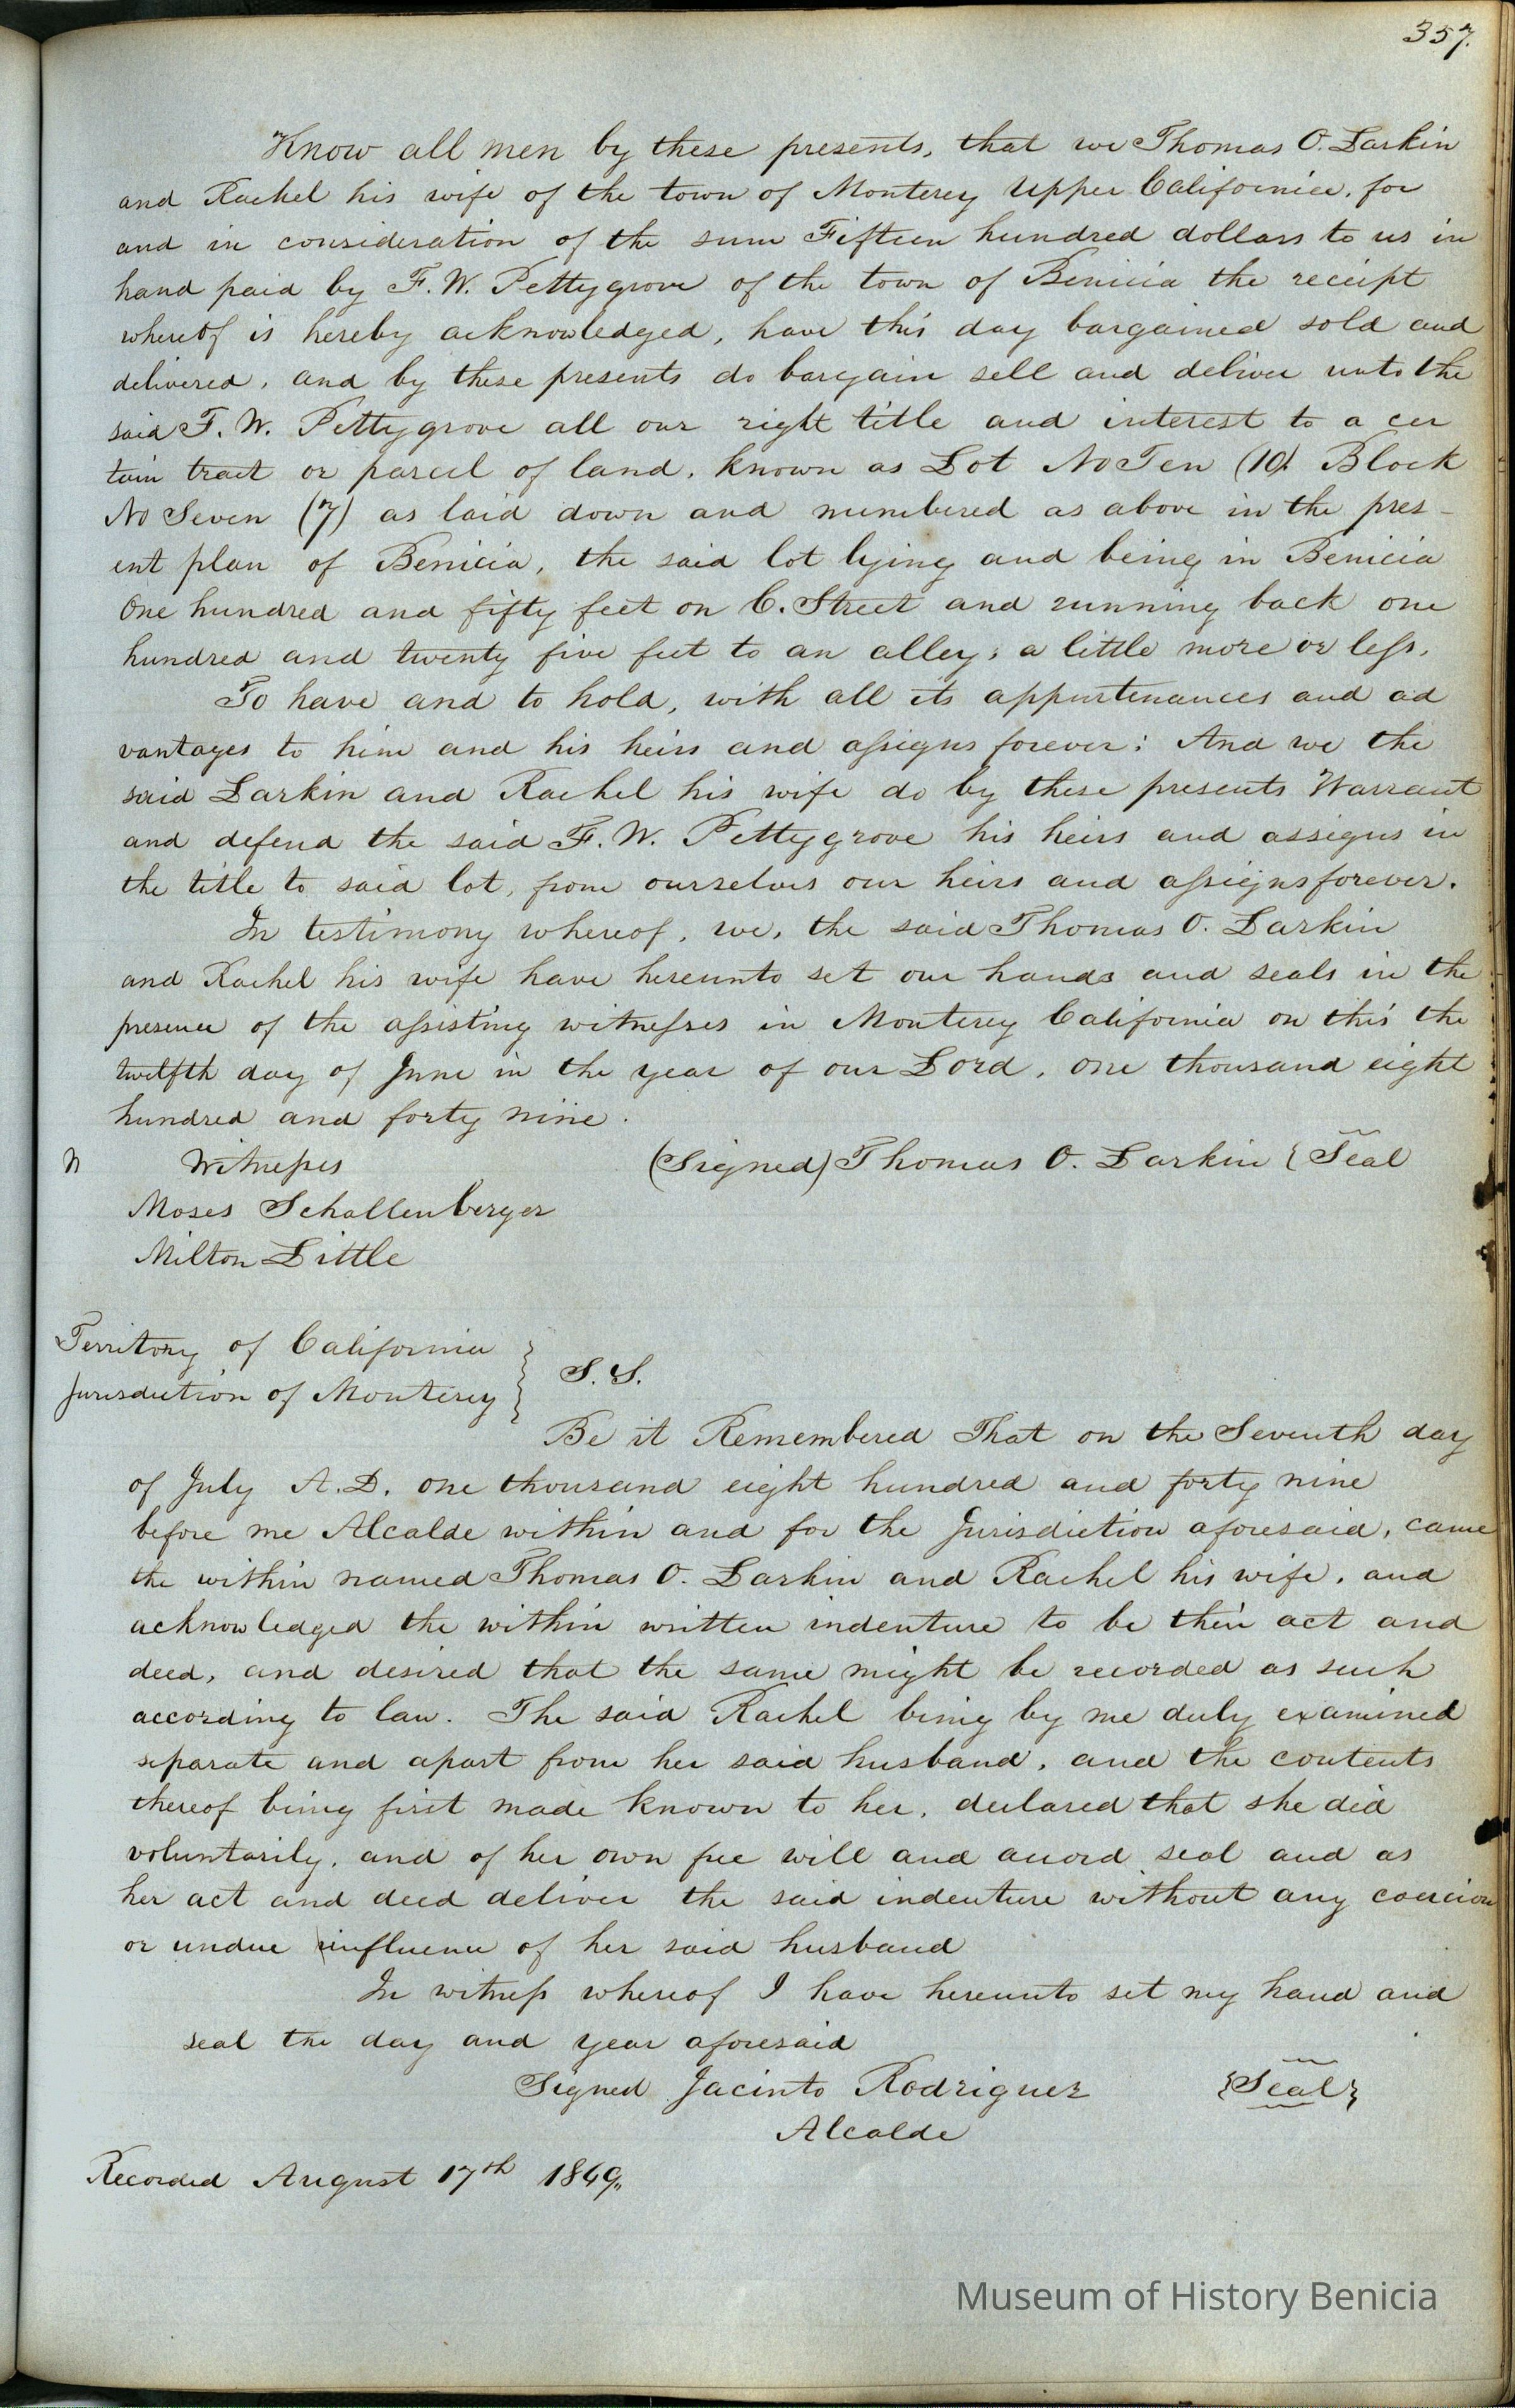 357.
Know all men by these presents, that we Thomas O. Larkin
and Rachel his wife of the town of Monterey Upper California, for
and in consideration of the sum Fifteen hundred dollars to us in
hand paid by F. W. Pettygrove of the town of Benicia the receipt
whereof is hereby acknowledged, have this day bargained sold and
delivered, and by these presents do bargain sell and deliver unto the
said F. W. Pettygrove all our right title and interest to a cer
tain tract or parcel of land, known as Lot No Ten (10) Block
No Seven (7) as laid down and numbered as above in the pres-
ent plan of Benicia, the said lot lying and being in Benicia
One hundred and fifty feet on C. Street and running back one
hundred and twenty five feet to an alley; a little more or less.
To have and to hold, with all its appurtenances and ad
vantages to him and his heirs and assigns forever: And we the
said Larkin and Rachel his wife do by these presents Warrant
and defend the said F. W. Pettygrove his heirs and assigns in
the title to said lot, from ourselves our heirs and assigns forever.
In testimony whereof, we, the said Thomas O. Larkin
and Rachel his wife have hereunto set our hands and seals in the
presence of the assisting witnesses in Monterey California on this the
twelfth day of June in the year of our Lord, one thousand eight
hundred and forty nine.
Witnesses (Signed) Thomas O. Larkin { Seal
Moses Schallenberger
Milton Little
Territory of California }
Jurisdiction of Monterey } S.S.
Be it Remembered That on the Seventh day
of July A.D. one thousand eight hundred and forty nine
before me Alcalde within and for the Jurisdiction aforesaid, came
the within named Thomas O. Larkin and Rachel his wife, and
acknowledged the within written indenture to be their act and
deed, and desired that the same might be recorded as such
according to law. The said Rachel being by me duly examined
separate and apart from her said husband, and the contents
thereof being first made known to her, declared that she did
voluntarily, and of her own free will and accord seal and as
her act and deed deliver the said indenture without any coercion
or undue influence of her said husband
In witness whereof I have hereunto set my hand and
seal the day and year aforesaid
Signed Jacinto Rodriguez {Seal}
Alcalde
Recorded August 17th 1849,,
Museum of History Benicia